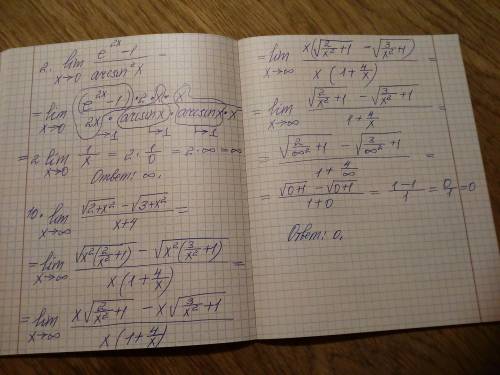 2. lim x→0 (e^{2x} - 1)/(arcsin² x) =
= lim x→0 ((e^{2x} - 1) · 2 · x · x)/(2x · (arcsin x) · (arcsin x) · x) =
→1 →1 →1
= 2 lim x→0 1/x = 2 · 1/0 = 2 · ∞ = ∞
Ответ: ∞.
10. lim x→∞ (√(2+x²) - √(3+x²))/(x+4) =
= lim x→∞ (√(x²(2/x² + 1)) - √(x²(3/x² + 1)))/(x(1 + 4/x)) =
= lim x→∞ (x√(2/x² + 1) - x√(3/x² + 1))/(x(1 + 4/x))
= lim x→∞ (x(√(2/x² + 1) - √(3/x² + 1)))/(x(1 + 4/x)) =
= lim x→∞ (√(2/x² + 1) - √(3/x² + 1))/(1 + 4/x) =
= (√(2/∞² + 1) - √(3/∞² + 1))/(1 + 4/∞) =
= (√(0+1) - √(0+1))/(1+0) = (1-1)/1 = 0/1 = 0
Ответ: 0.